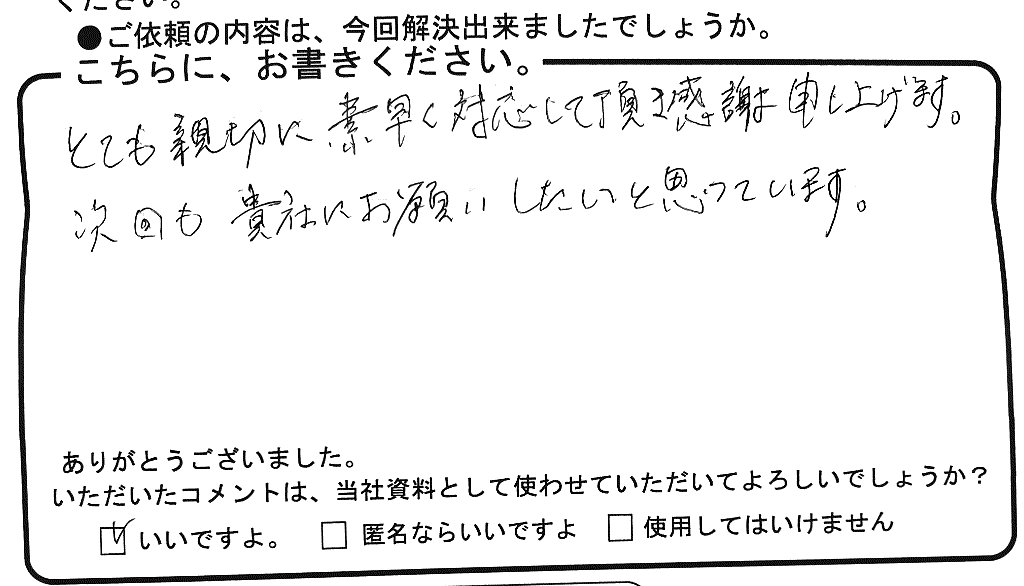 ください。
●ご依頼の内容は、今回解決出来ましたでしょうか。
こちらに、お書きください。
とても親切に素早く対応して頂き感謝申し上げます。
次回も貴社にお願いしたいと思っています。
ありがとうございました。
いただいたコメントは、当社資料として使わせていただいてよろしいでしょうか？
☑ いいですよ。 □ 匿名ならいいですよ □ 使用してはいけません